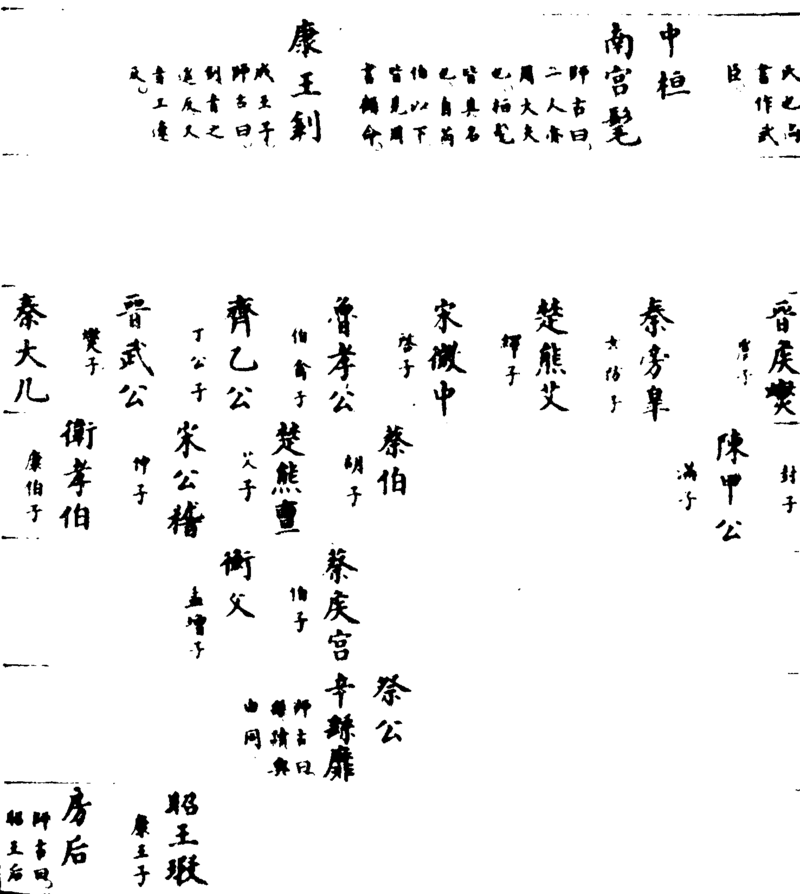 氏也尚
書作武
臣
中桓
南宮髦
師古曰
二人亦
周大夫
也桓髦
皆其名
也自芮
伯以下
皆見周
書顧命
康王釗
成王子
師古曰
釗音之
遙反又
音工遼
反
晉侯燮
虞子
秦旁皐
女防子
楚熊艾
繹子
宋微中
啓子
魯孝公
伯禽子
齊乙公
丁公子
晉武公
燮子
秦大几
封子
陳申公
滿子
蔡伯
胡子
楚熊亶
艾子
宋公稽
仲子
衛孝伯
康伯子
蔡侯宮
伯子
衡父
孟增子
祭公
辛繇靡
師古曰
繇讀與
由同
昭王瑕
康王子
房后
師古曰
昭王后